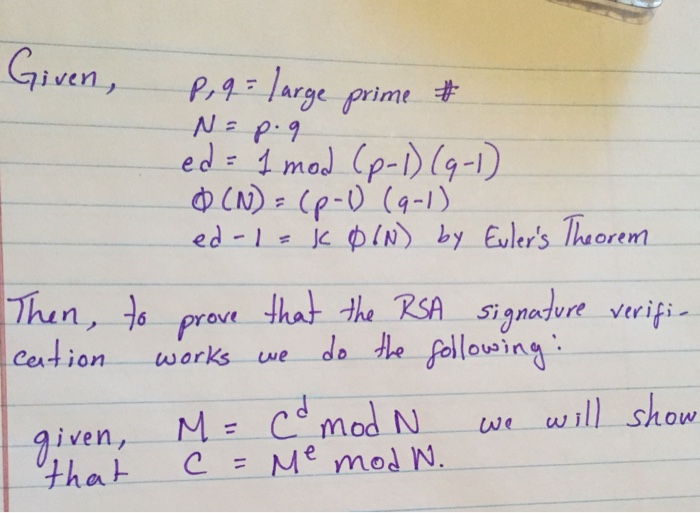 Given,
p,q = large prime #
N = p·q
ed = 1 mod (p-1)(q-1)
Φ(N) = (p-1) (q-1)
ed - 1 = k Φ(N) by Euler's Theorem
Then, to prove that the RSA signature verifi-
cation works we do the following:
given, M = C^d mod N we will show
that C = M^e mod N.